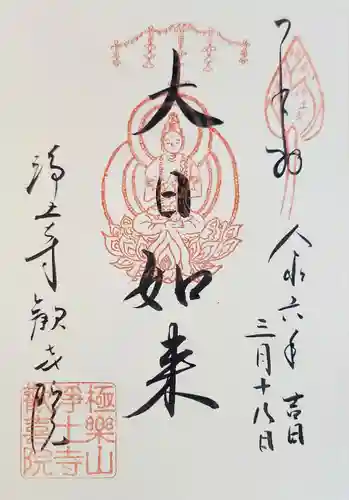 奉拝
令和六年 吉日
三月十八日
大日如来
浄土寺 歓喜院
極樂山
浄土寺
歓喜院